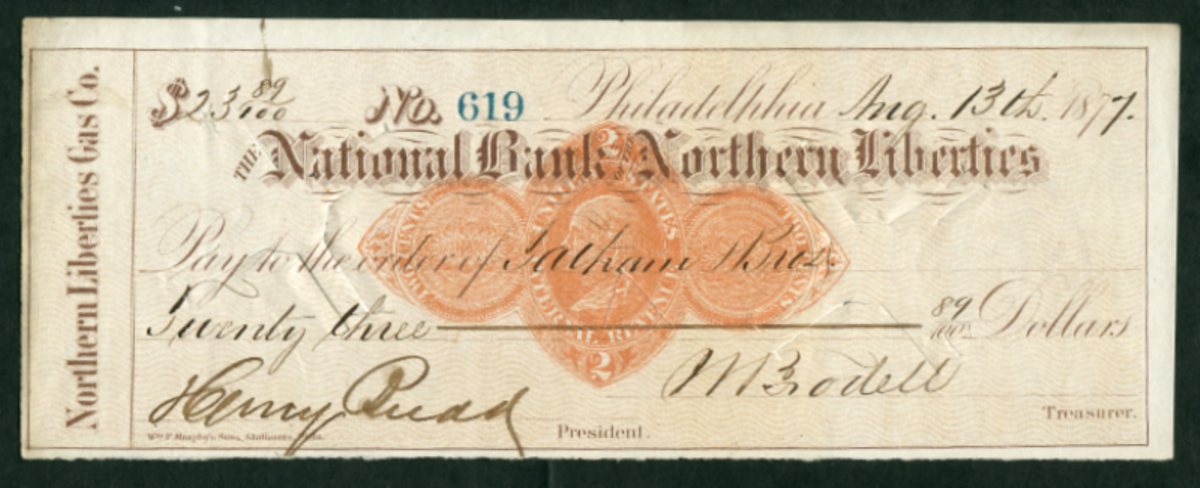 Northern Liberties Gas Co.
$23 89/100 No. 619 Philadelphia Aug. 13th. 1877.
THE National Bank OF THE Northern Liberties
Pay to the order of Tatham & Bros.
Twenty three 89/100 Dollars
Henry Budd
President.
Treasurer.
Wm F. Murphy's Sons, Stationers, Phila.
2
UNITED STATES
INTERNAL REVENUE
2